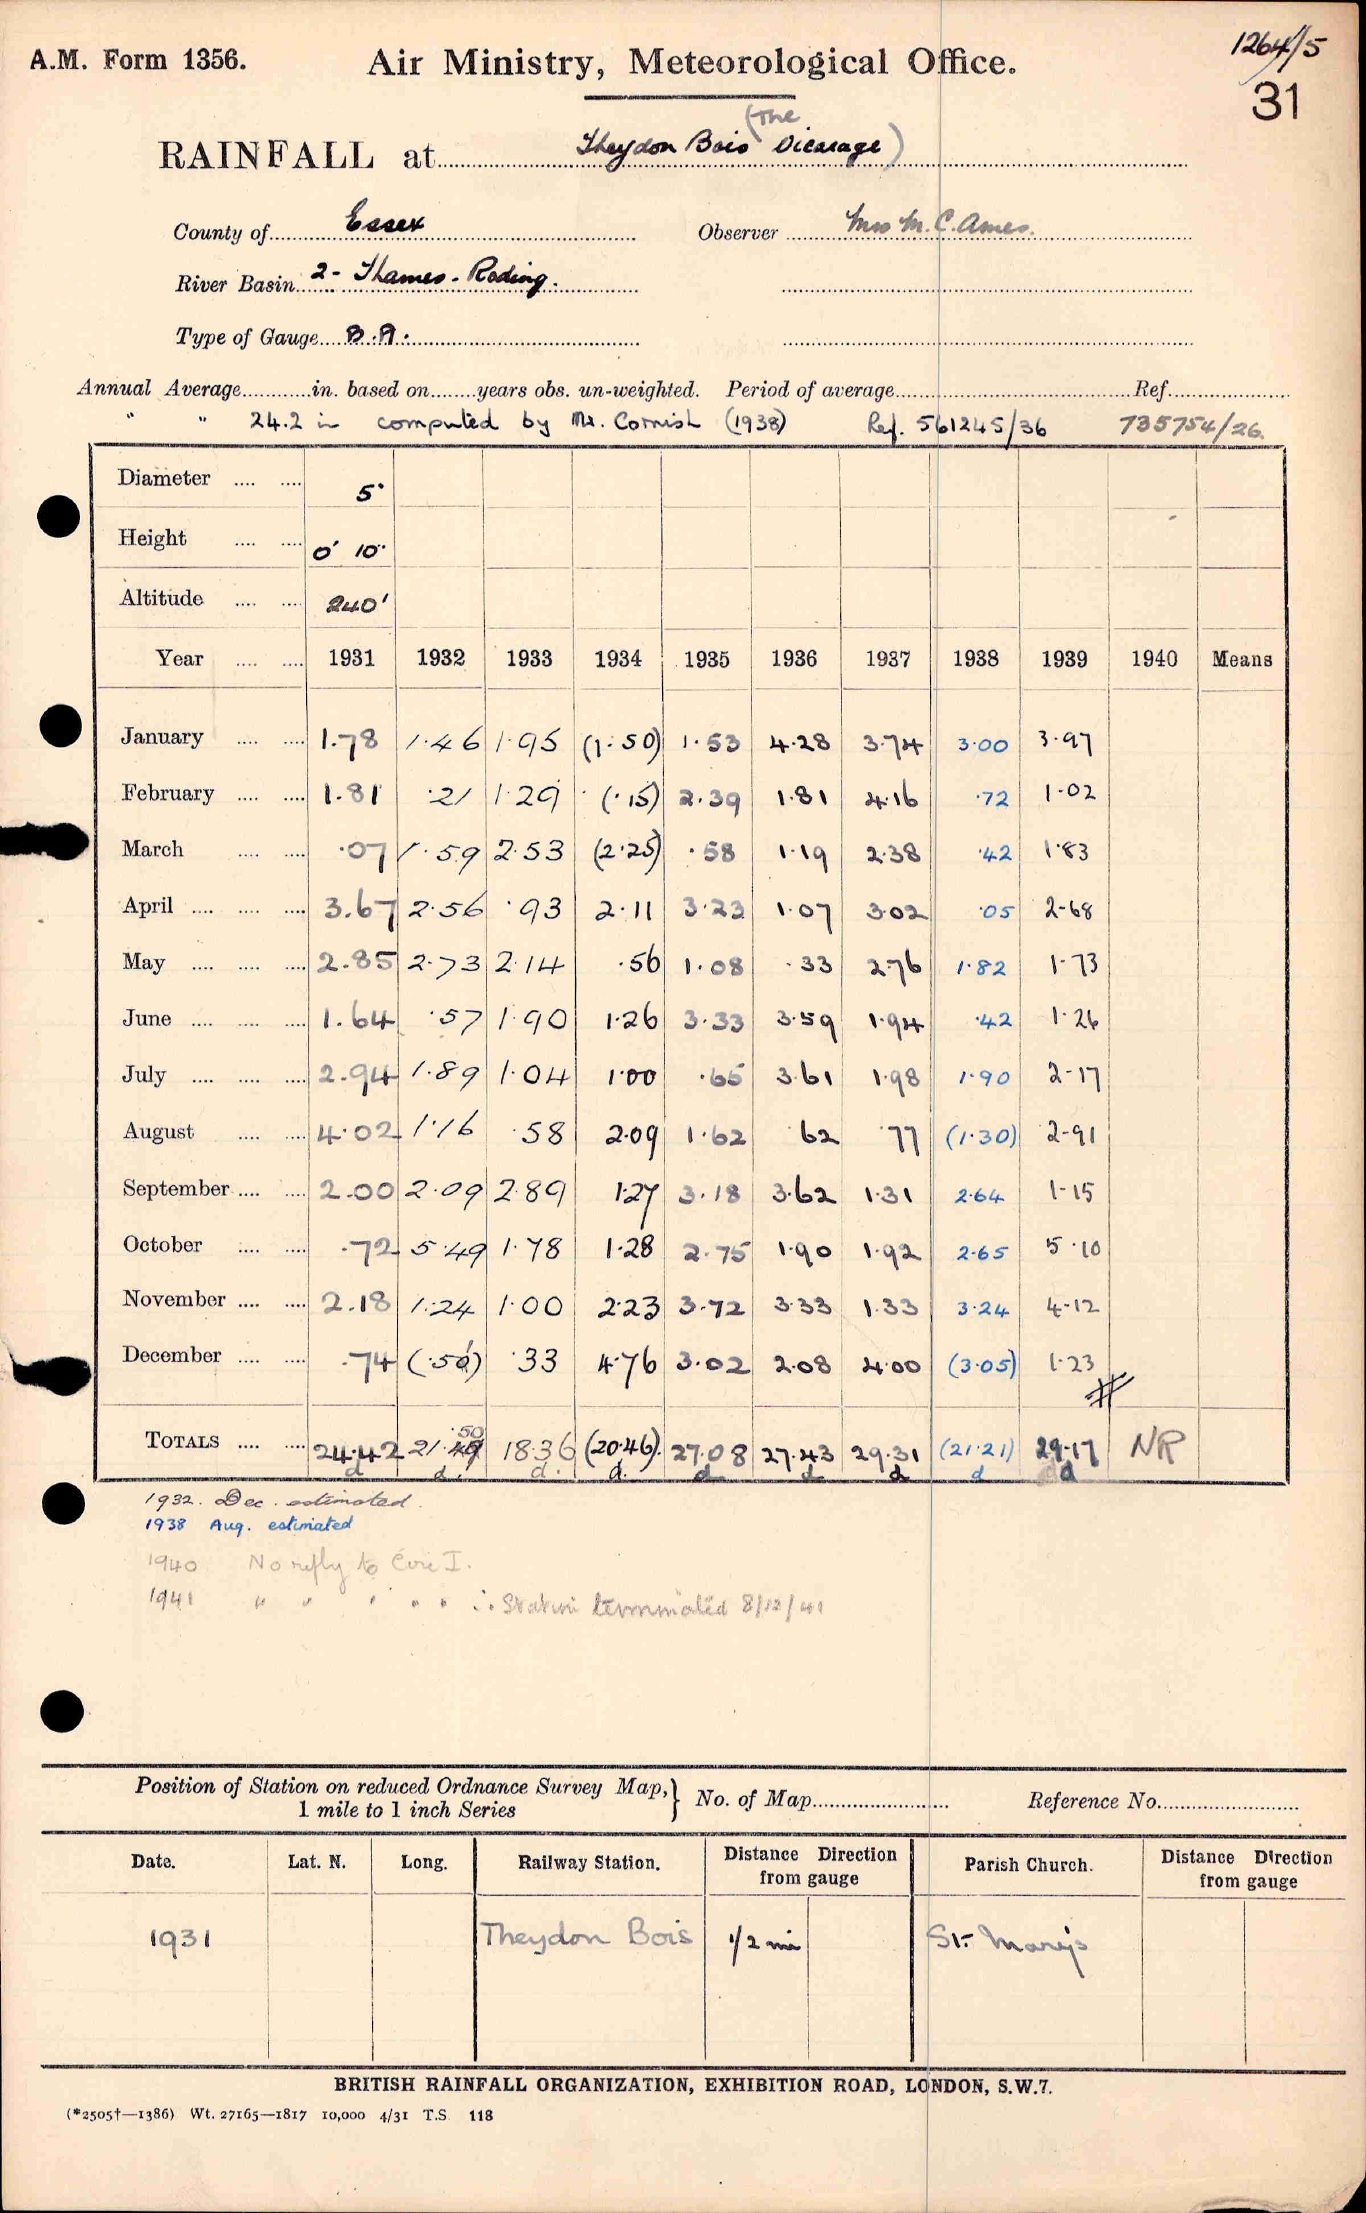 A.M. Form 1356.
Air Ministry, Meteorological Office.
1264/5
31
RAINFALL at Theydon Bois (The Vicarage)
County of Essex Observer Mrs M. C. Ames.
River Basin 2- Thames - Roding.
Type of Gauge B.A.
Annual Average in. based on years obs. un-weighted. Period of average Ref.
" " 24.2 in computed by Mr. Cornish (1938) Ref. 561245/36 735754/26.
Diameter 5"
Height 0' 10"
Altitude 240'
Year 1931 1932 1933 1934 1935 1936 1937 1938 1939 1940 Means
January 1.78 1.46 1.95 (1.50) 1.53 4.28 3.74 3.00 3.97
February 1.81 .21 1.29 (.15) 2.39 1.81 4.16 .72 1.02
March .07 1.59 2.53 (2.25) .58 1.19 2.38 .42 1.83
April 3.67 2.56 .93 2.11 3.23 1.07 3.02 .05 2.68
May 2.85 2.73 2.14 .56 1.08 .33 2.76 1.82 1.73
June 1.64 .57 1.90 1.26 3.33 3.59 1.94 .42 1.26
July 2.94 1.89 1.04 1.00 .65 3.61 1.98 1.90 2.17
August 4.02 1.16 .58 2.09 1.62 .62 .77 (1.30) 2.91
September 2.00 2.09 2.89 1.27 3.18 3.62 1.31 2.64 1.15
October .72 5.49 1.78 1.28 2.75 1.90 1.92 2.65 5.10
November 2.18 1.24 1.00 2.23 3.72 3.33 1.33 3.24 4.12
December .74 (.51) .33 4.76 3.02 2.08 4.00 (3.05) 1.23
TOTALS 24.42 21.50 18.36 (20.46) 27.08 27.43 29.31 (21.21) 29.17 NR
d d. d. d. d d d d d
1932. Dec. estimated.
1938 Aug. estimated
1940 No reply to Circ I.
1941 " " " " " ∴ Station terminated 8/12/41
Position of Station on reduced Ordnance Survey Map, 1 mile to 1 inch Series } No. of Map Reference No.
Date. Lat. N. Long. Railway Station. Distance Direction from gauge Parish Church. Distance Direction from gauge
1931 Theydon Bois 1/2 mi St. Mary's
BRITISH RAINFALL ORGANIZATION, EXHIBITION ROAD, LONDON, S.W.7.
(*2505†—1386) Wt. 27165—1817 10,000 4/31 T.S. 118